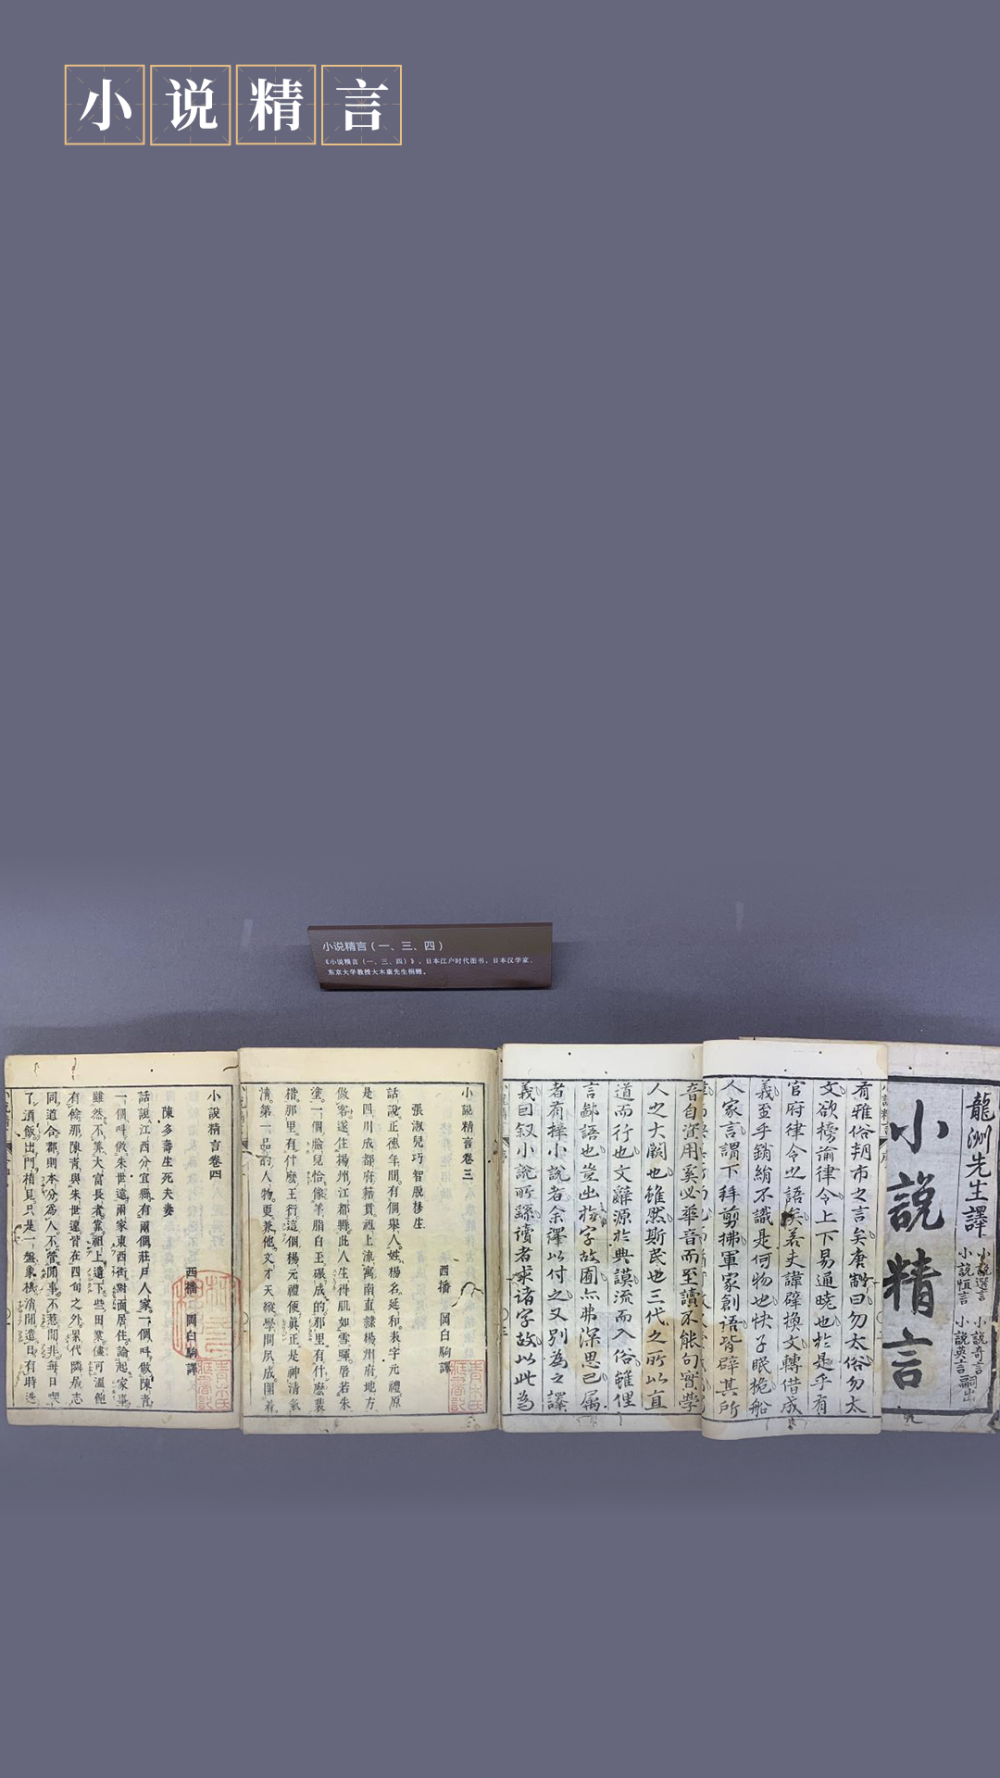 小说精言
小说精言（一、三、四）
《小说精言（一、三、四）》，日本江户时代图书，日本汉学家、
东京大学教授大木康先生捐赠。
龍洲先生譯
小説精言
小説選言
小説恒言
小説奇言
小説英言 嗣出
有雅俗朝市之言矣唐制曰勿太俗勿太
文欲榜諭律令上下易通曉也於是乎有
官府律令之語矣若夫諱避換文轉借成
義至乎銷絹不識是何物也快子眠桅船
人家言謂下拜剪拂軍家創語皆辟其所
音自資用奚必華音而至讀不能句嚳學
人之大闕也雖然斯民也三代之所以直
道而行也文辭源於典謨流而入俗雖俚
言鄙語也豈出於字故圃亦弗深思已属
者有擇小説者余譯以付之又別為之譯
義曰叙小說所繇讀者求诸字故以此為
小說精言卷三
張淑兒巧智脫楊生
西播 岡白駒譯
話說正德年間有個舉人姓楊名延和表字元禮原
是四川成都府籍貫祖上流寓南直隸楊州府地方
做客遂住揚州江都縣此人生得肌如雪暈唇若朱
塗一個臉兒恰像羊脂白玉碾成的那里有什麼裴
楷那里有什麼王衍這個楊元禮便真正是神清氣
清第一品的人物更兼他文才天縱學問夙成開着
小說精言卷四
陳多壽生死夫妻
西播 岡白駒譯
話說江西分宜縣有兩個莊戶人家一個叫做陳青
一個叫做朱世遠兩家東西街對面居住論起家事
雖然不筭大富長者靠祖上遺下些田業儘可溫飽
有餘那陳青與朱世遠皆在四旬之外累代隣居志
同道合都則本分為人不管閒事不惹閒非每日喫
了酒飯出門相見只是一盤象棋消閒遣日有時迭